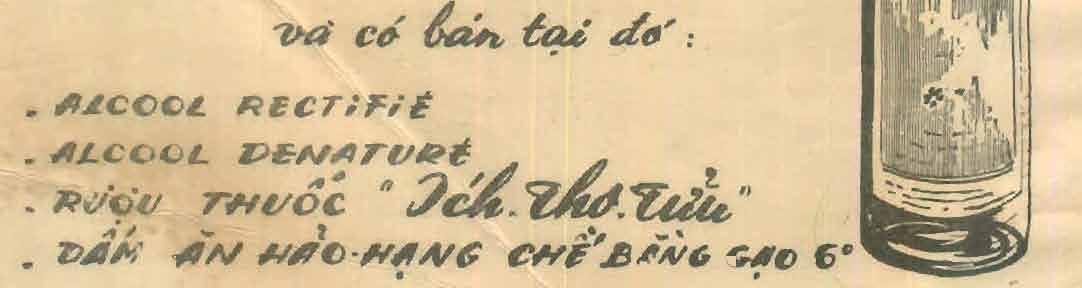 và có bán tại đó :
. ALCOOL RECTIFIÉ
. ALCOOL DENATURÉ
. RƯỢU THUỐC "Ích-Thọ-Tửu"
. DẤM ĂN HẢO-HẠNG CHẾ BẰNG GẠO 6°